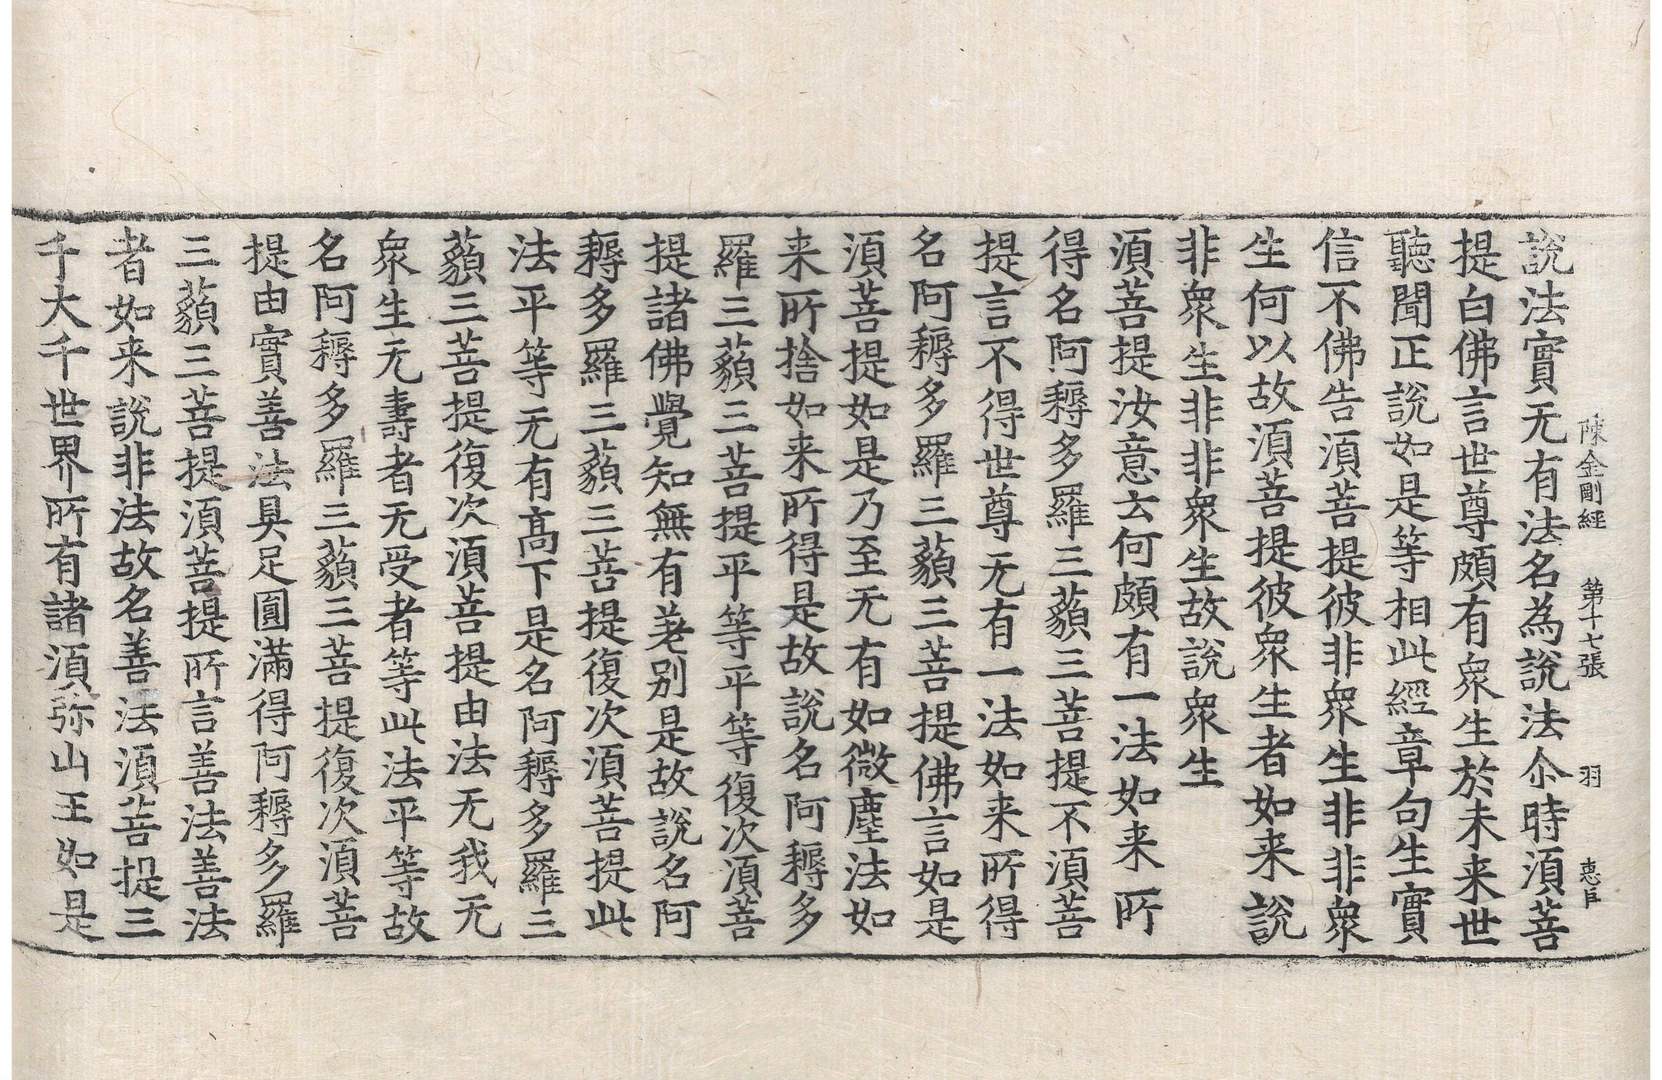 陳金剛經 第十七張 羽
說法實无有法名為說法尒時湏菩
提白佛言世尊頗有衆生於未来世
聽聞正說如是等相此經章句生實
信不佛告湏菩提彼非衆生非非衆
生何以故湏菩提彼衆生者如来說
非衆生非非衆生故說衆生
湏菩提汝意云何頗有一法如来所
得名阿耨多羅三藐三菩提不湏菩
提言不得世尊无有一法如来所得
名阿耨多羅三藐三菩提佛言如是
湏菩提如是乃至无有如微塵法如
来所捨如来所得是故說名阿耨多
羅三藐三菩提平等平等復次湏菩
提諸佛覺知無有差别是故說名阿
耨多羅三藐三菩提復次湏菩提此
法平等无有高下是名阿耨多羅三
藐三菩提復次湏菩提由法无我无
衆生无壽者无受者等此法平等故
名阿耨多羅三藐三菩提復次湏菩
提由實善法具足圓滿得阿耨多羅
三藐三菩提湏菩提所言善法善法
者如来說非法故名善法湏菩提三
千大千世界所有諸湏弥山王如是